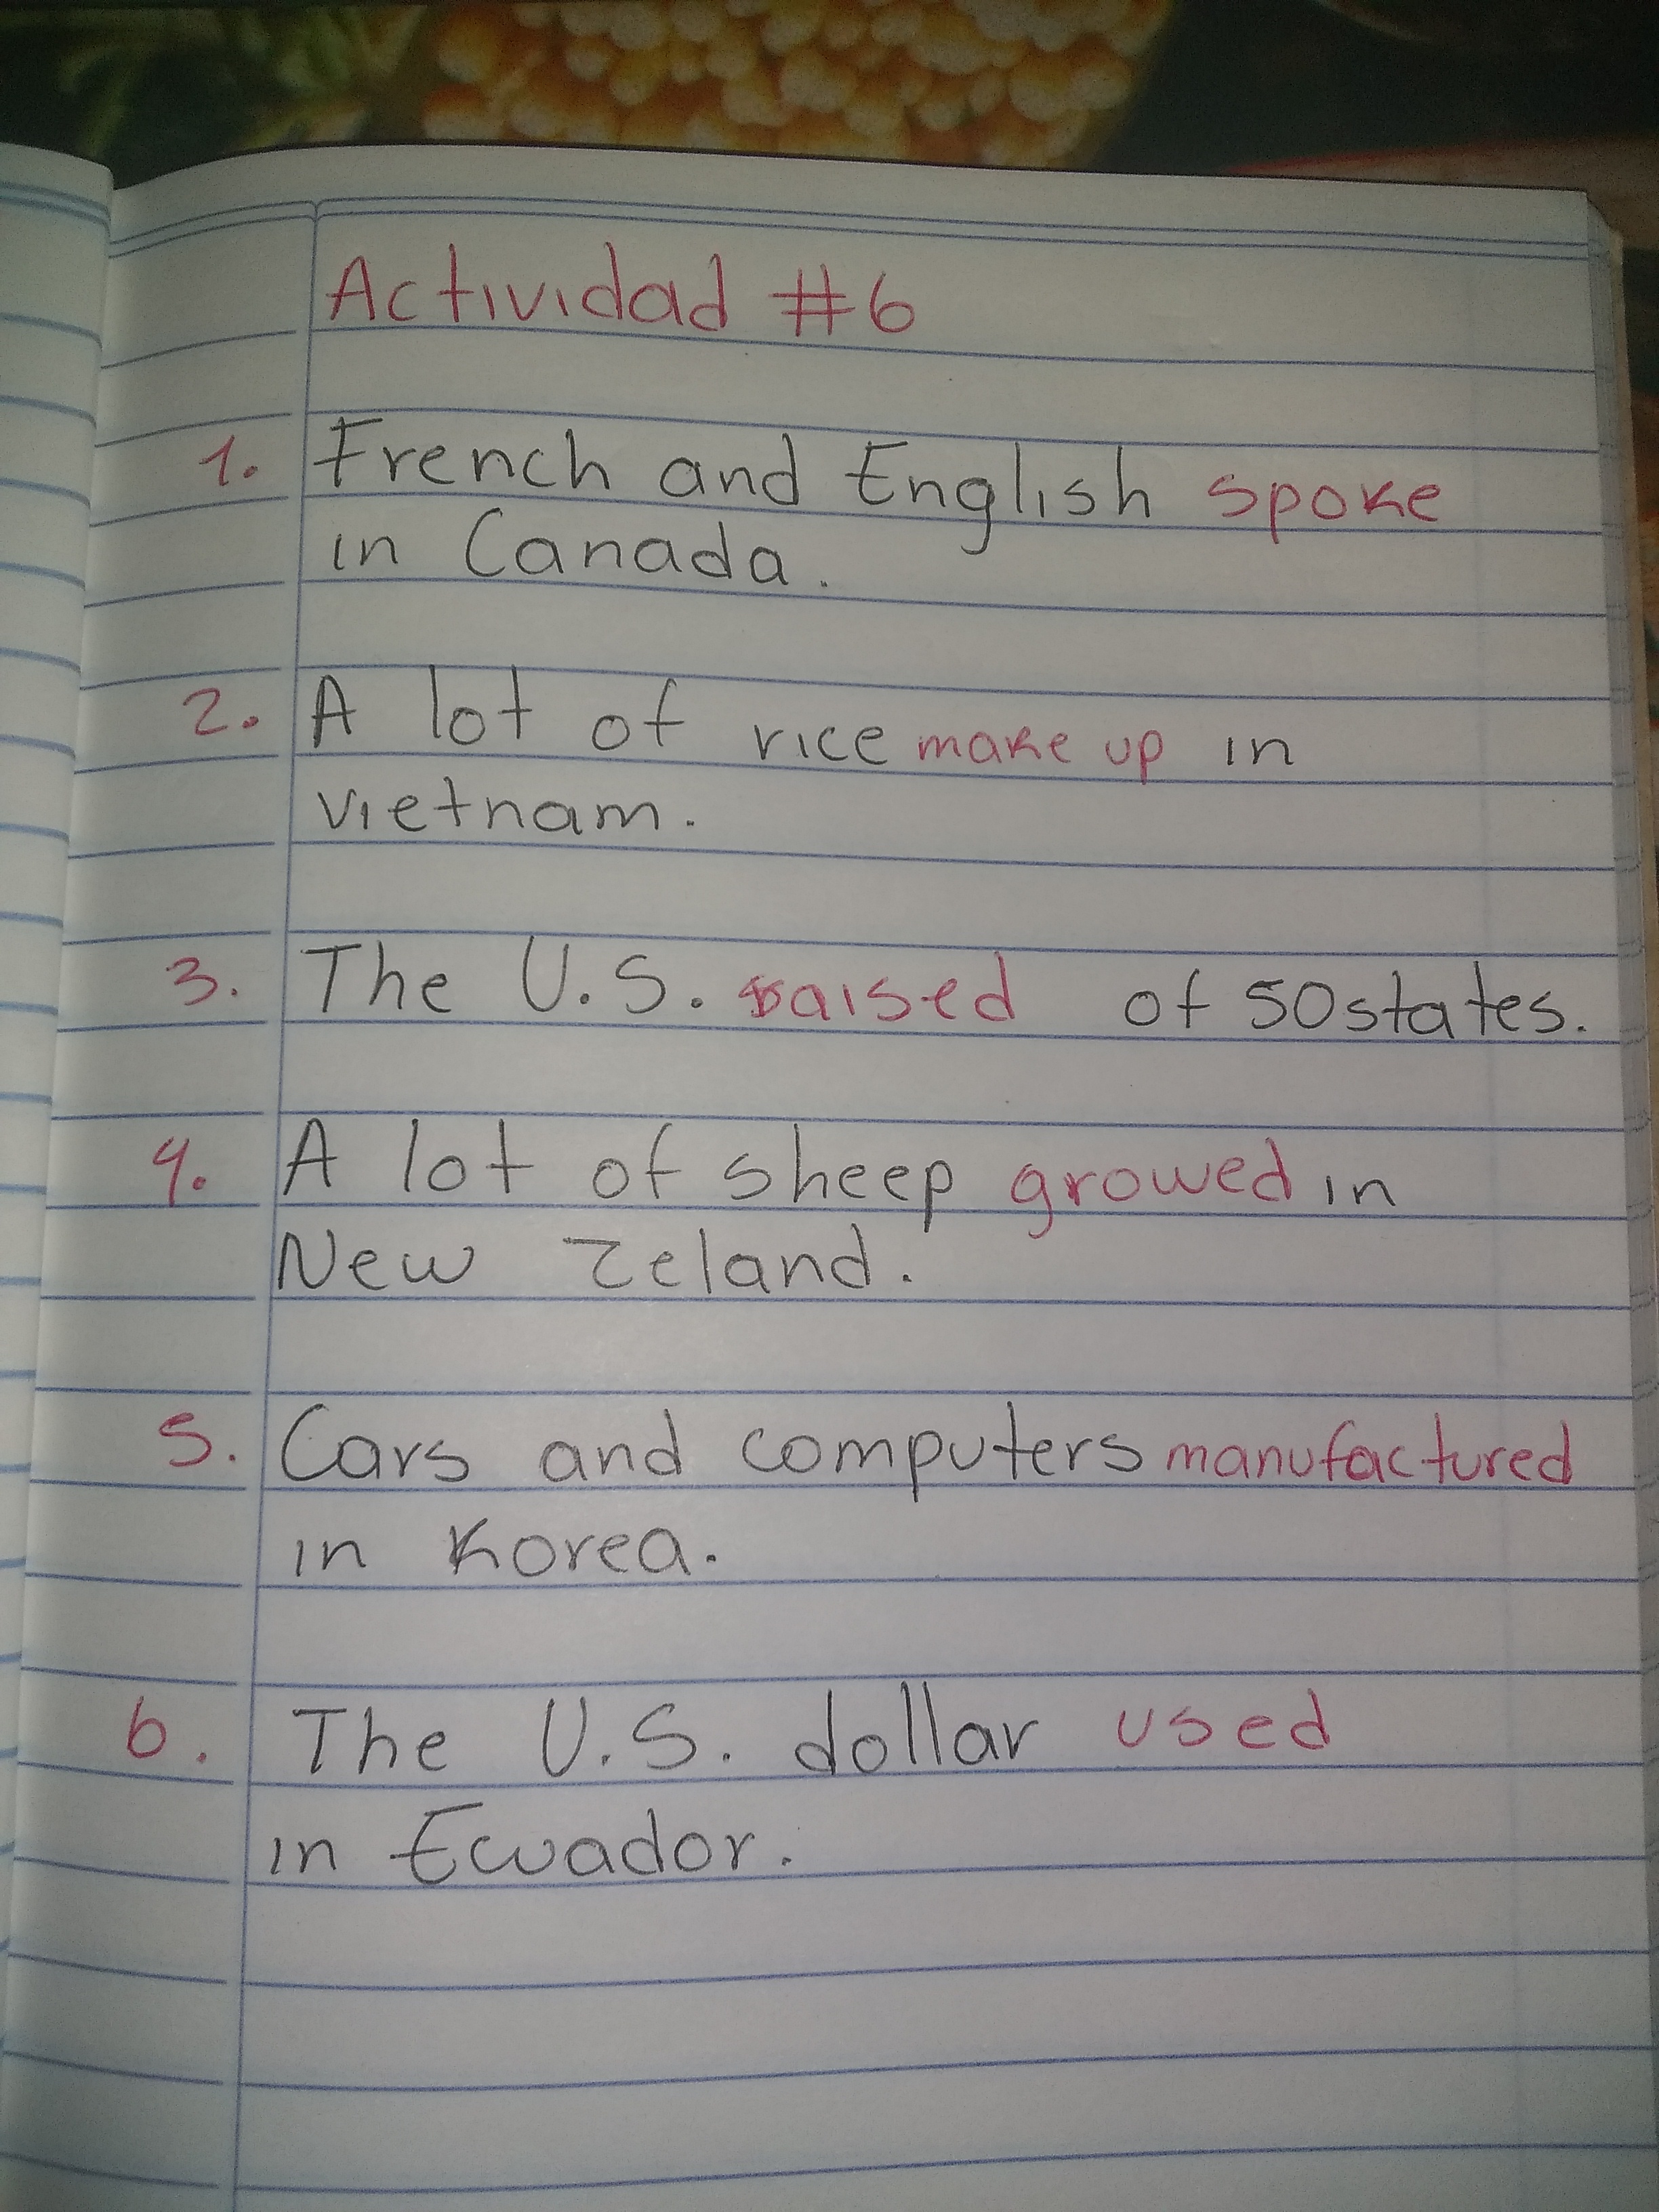 Actividad #6
1. French and English spoke
in Canada.
2. A lot of rice make up in
vietnam.
3. The U.S. raised of 50 states.
4. A lot of sheep growed in
New Zeland.
5. Cars and computers manufactured
in Korea.
6. The U.S. dollar used
in Ecuador.